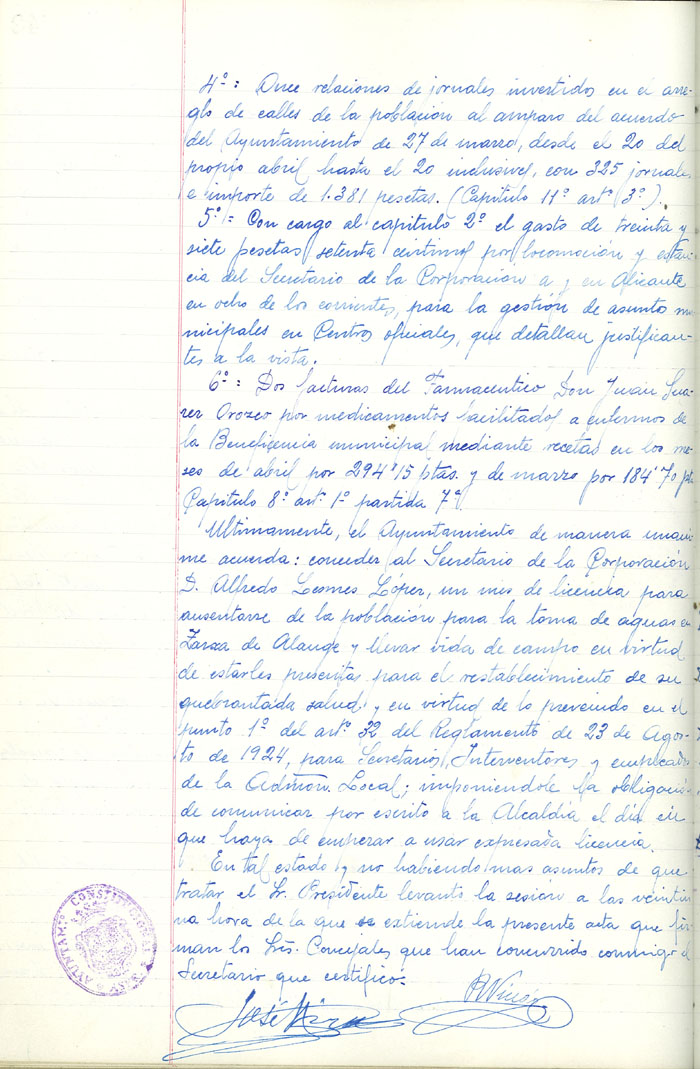 4º = Once relaciones de jornales invertidos en el arre-
glo de calles de la población al amparo del acuerdo
del Ayuntamiento de 27 de marzo, desde el 20 del
propio abril hasta el 20 inclusives, con 325 jornales
e importe de 1.381 pesetas. (Capítulo 11º artº 3º).
5º = Con cargo al capítulo 2º el gasto de treinta y
siete pesetas setenta céntimos por locomoción y estan-
cia del Secretario de la Corporación a y en Alicante
en ocho de los corrientes, para la gestión de asunto mu-
nicipales en Centros oficiales, que detallan justifican-
tes a la vista.
6º = Dos facturas del Farmacéutico Don Juan Sua-
rez Orozco por medicamentos facilitados a enfermos de
la Beneficencia municipal mediante recetas en los me-
ses de abril por 294'15 ptas. y de marzo por 184'70 pts
Capítulo 8º artº 1º partida 7ª
Ultimamente, el Ayuntamiento de manera unani-
me acuerda: conceder al Secretario de la Corporación
D. Alfredo Lesmes López, un mes de licencia para
ausentarse de la población para la toma de aguas en
Zarza de Alange y llevar vida de campo en virtud
de estarles prescritas para el restablecimiento de su
quebrantada salud y en virtud de lo prevenido en el
punto 1º del artº 32 del Reglamento de 23 de Agos-
to de 1924, para Secretarios, Interventores y empleados
de la Admon. Local; imponiendole la obligación
de comunicar por escrito a la Alcaldía el día en
que haya de empezar a usar expresada licencia.
En tal estado y no habiendo mas asuntos de que
tratar el Sr. Presidente levanto la sesión a las veintiu
na hora de la que se extiende la presente acta que fir-
man los Srs. Concejales que han concurrido conmigo el
Secretario que certifico:
AYUNTAMTº CONSTITUCIONAL
José